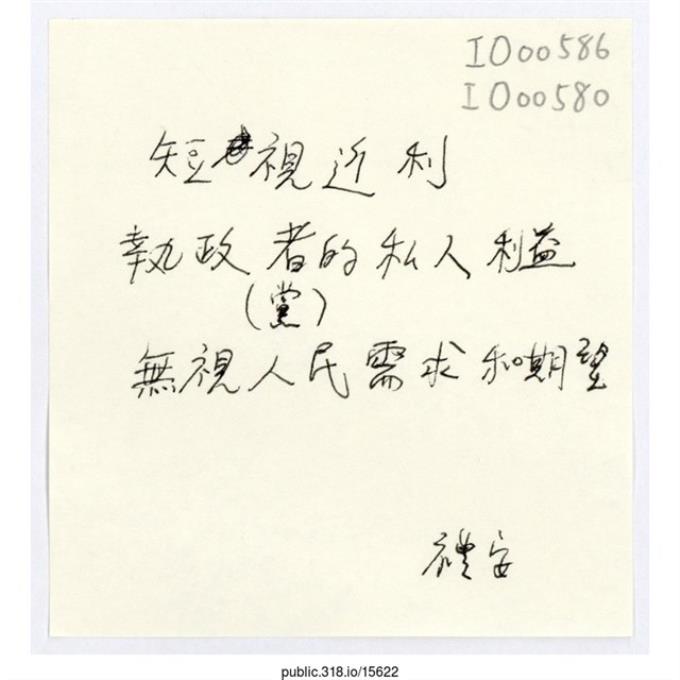 IO00586
IO00580
短視近利
執政者的私人利益
(黨)
無視人民需求和期望
禮安
public.318.io/15622